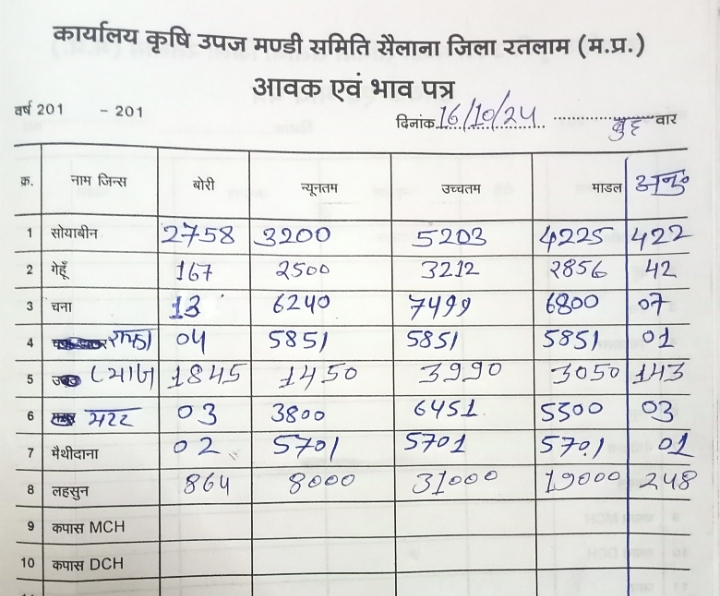 कार्यालय कृषि उपज मण्डी समिति सैलाना जिला रतलाम (म.प्र.)
आवक एवं भाव पत्र
वर्ष 201 - 201
दिनांक 16/10/24 बुध वार
क्र. नाम जिन्स बोरी न्यूनतम उच्चतम माडल अनु०
1 सोयाबीन 2758 3200 5203 4225 422
2 गेहूँ 167 2500 3212 2856 42
3 चना 13 6240 7499 6800 07
4 04 5851 5851 5851 01
5 प्याज 1845 1450 3990 3050 143
6 मटर 03 3800 6451 5300 03
7 मैथीदाना 02 5701 5701 5701 01
8 लहसुन 864 8000 31000 19000 248
9 कपास MCH
10 कपास DCH